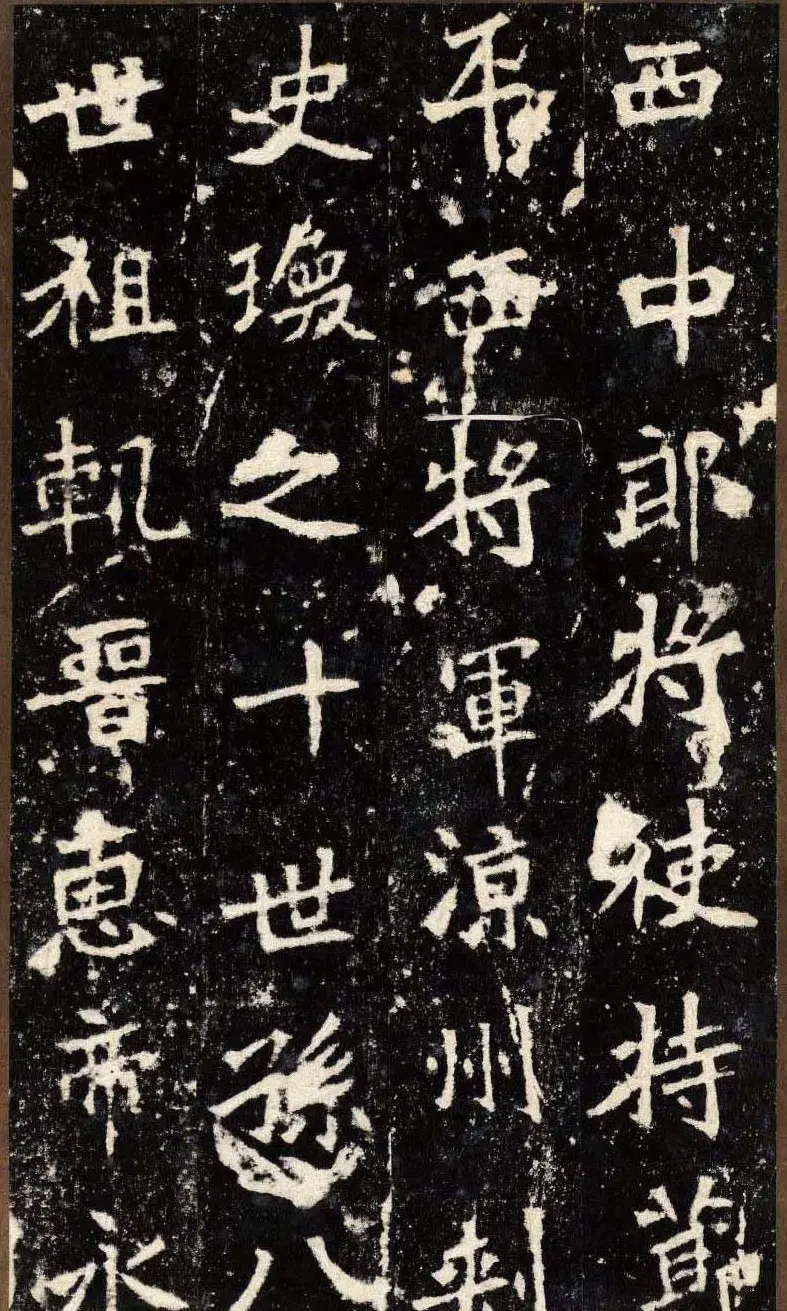 西中郎將使持節
平西將軍涼州刺
史瑍之十世孫八
世祖軌晉惠帝永